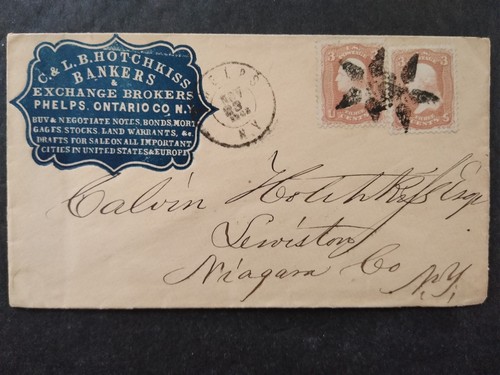 C. & L.B. HOTCHKISS
BANKERS
&
EXCHANGE BROKERS
PHELPS, ONTARIO CO N.Y.
BUY & NEGOTIATE NOTES, BONDS, MORT
GAGES, STOCKS, LAND WARRANTS, &c.
DRAFTS FOR SALE ON ALL IMPORTANT
CITIES IN UNITED STATES & EUROPE
PHELPS
N.Y.
3 3
U CENTS
3 3
CENTS S
Calvin Hotchkiss Esq
Lewiston
Niagara Co N.Y.